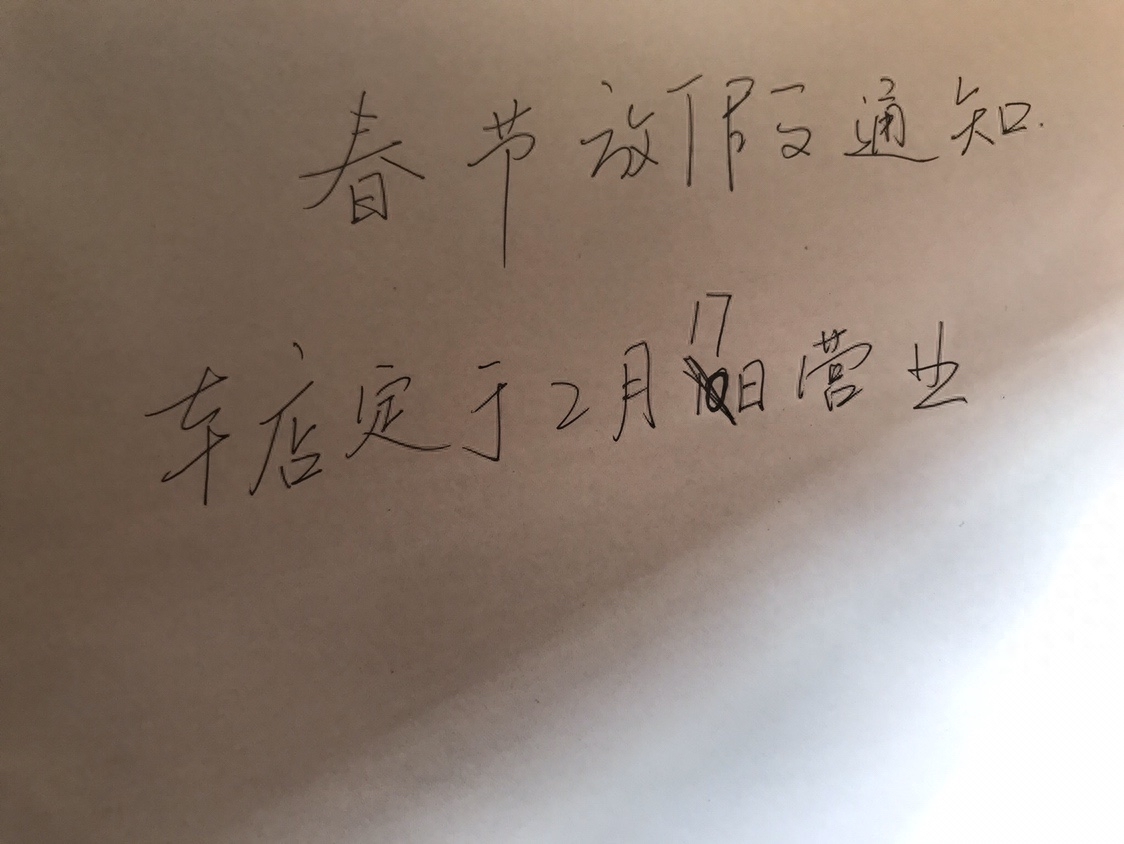 春节放假通知.
车店定于2月17日营业